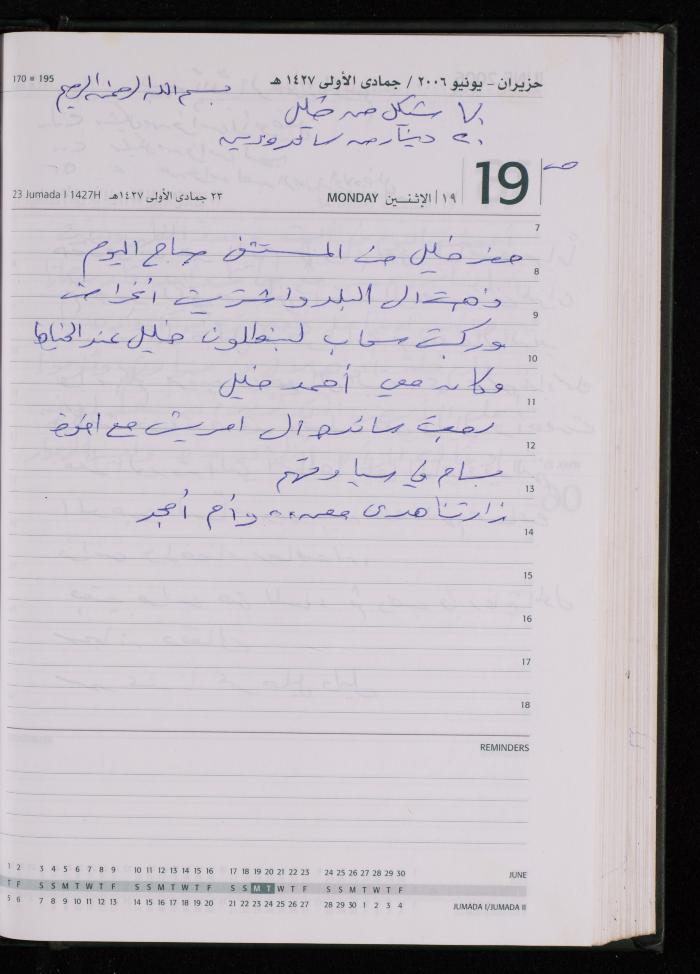 170 = 195
حزيران - يونيو ٢٠٠٦ / جمادى الأولى ١٤٢٧ هـ
بسم الله الرحمن الرحيم
٧٠ شيكل من خليل
٢٠ دينار من
19
23 Jumada I 1427H ٢٣ جمادى الأولى ١٤٢٧هـ
MONDAY الإثنين | ١٩
7
حضر خليل من المستشفى صباح اليوم
8
ذهبت الى البلد واشتريت
9
وركبت سحاب لبنطلون خليل عند الخياط
10
وكان معي أحمد خليل
11
الى مع
12
في
13
زارتنا هدى وأم أمجد
14
15
16
17
18
REMINDERS
1 2 3 4 5 6 7 8 9 10 11 12 13 14 15 16 17 18 19 20 21 22 23 24 25 26 27 28 29 30 JUNE
T F S S M T W T F S S M T W T F S S M T W T F S S M T W T F
5 6 7 8 9 10 11 12 13 14 15 16 17 18 19 20 21 22 23 24 25 26 27 28 29 30 1 2 3 4 JUMADA I/JUMADA II